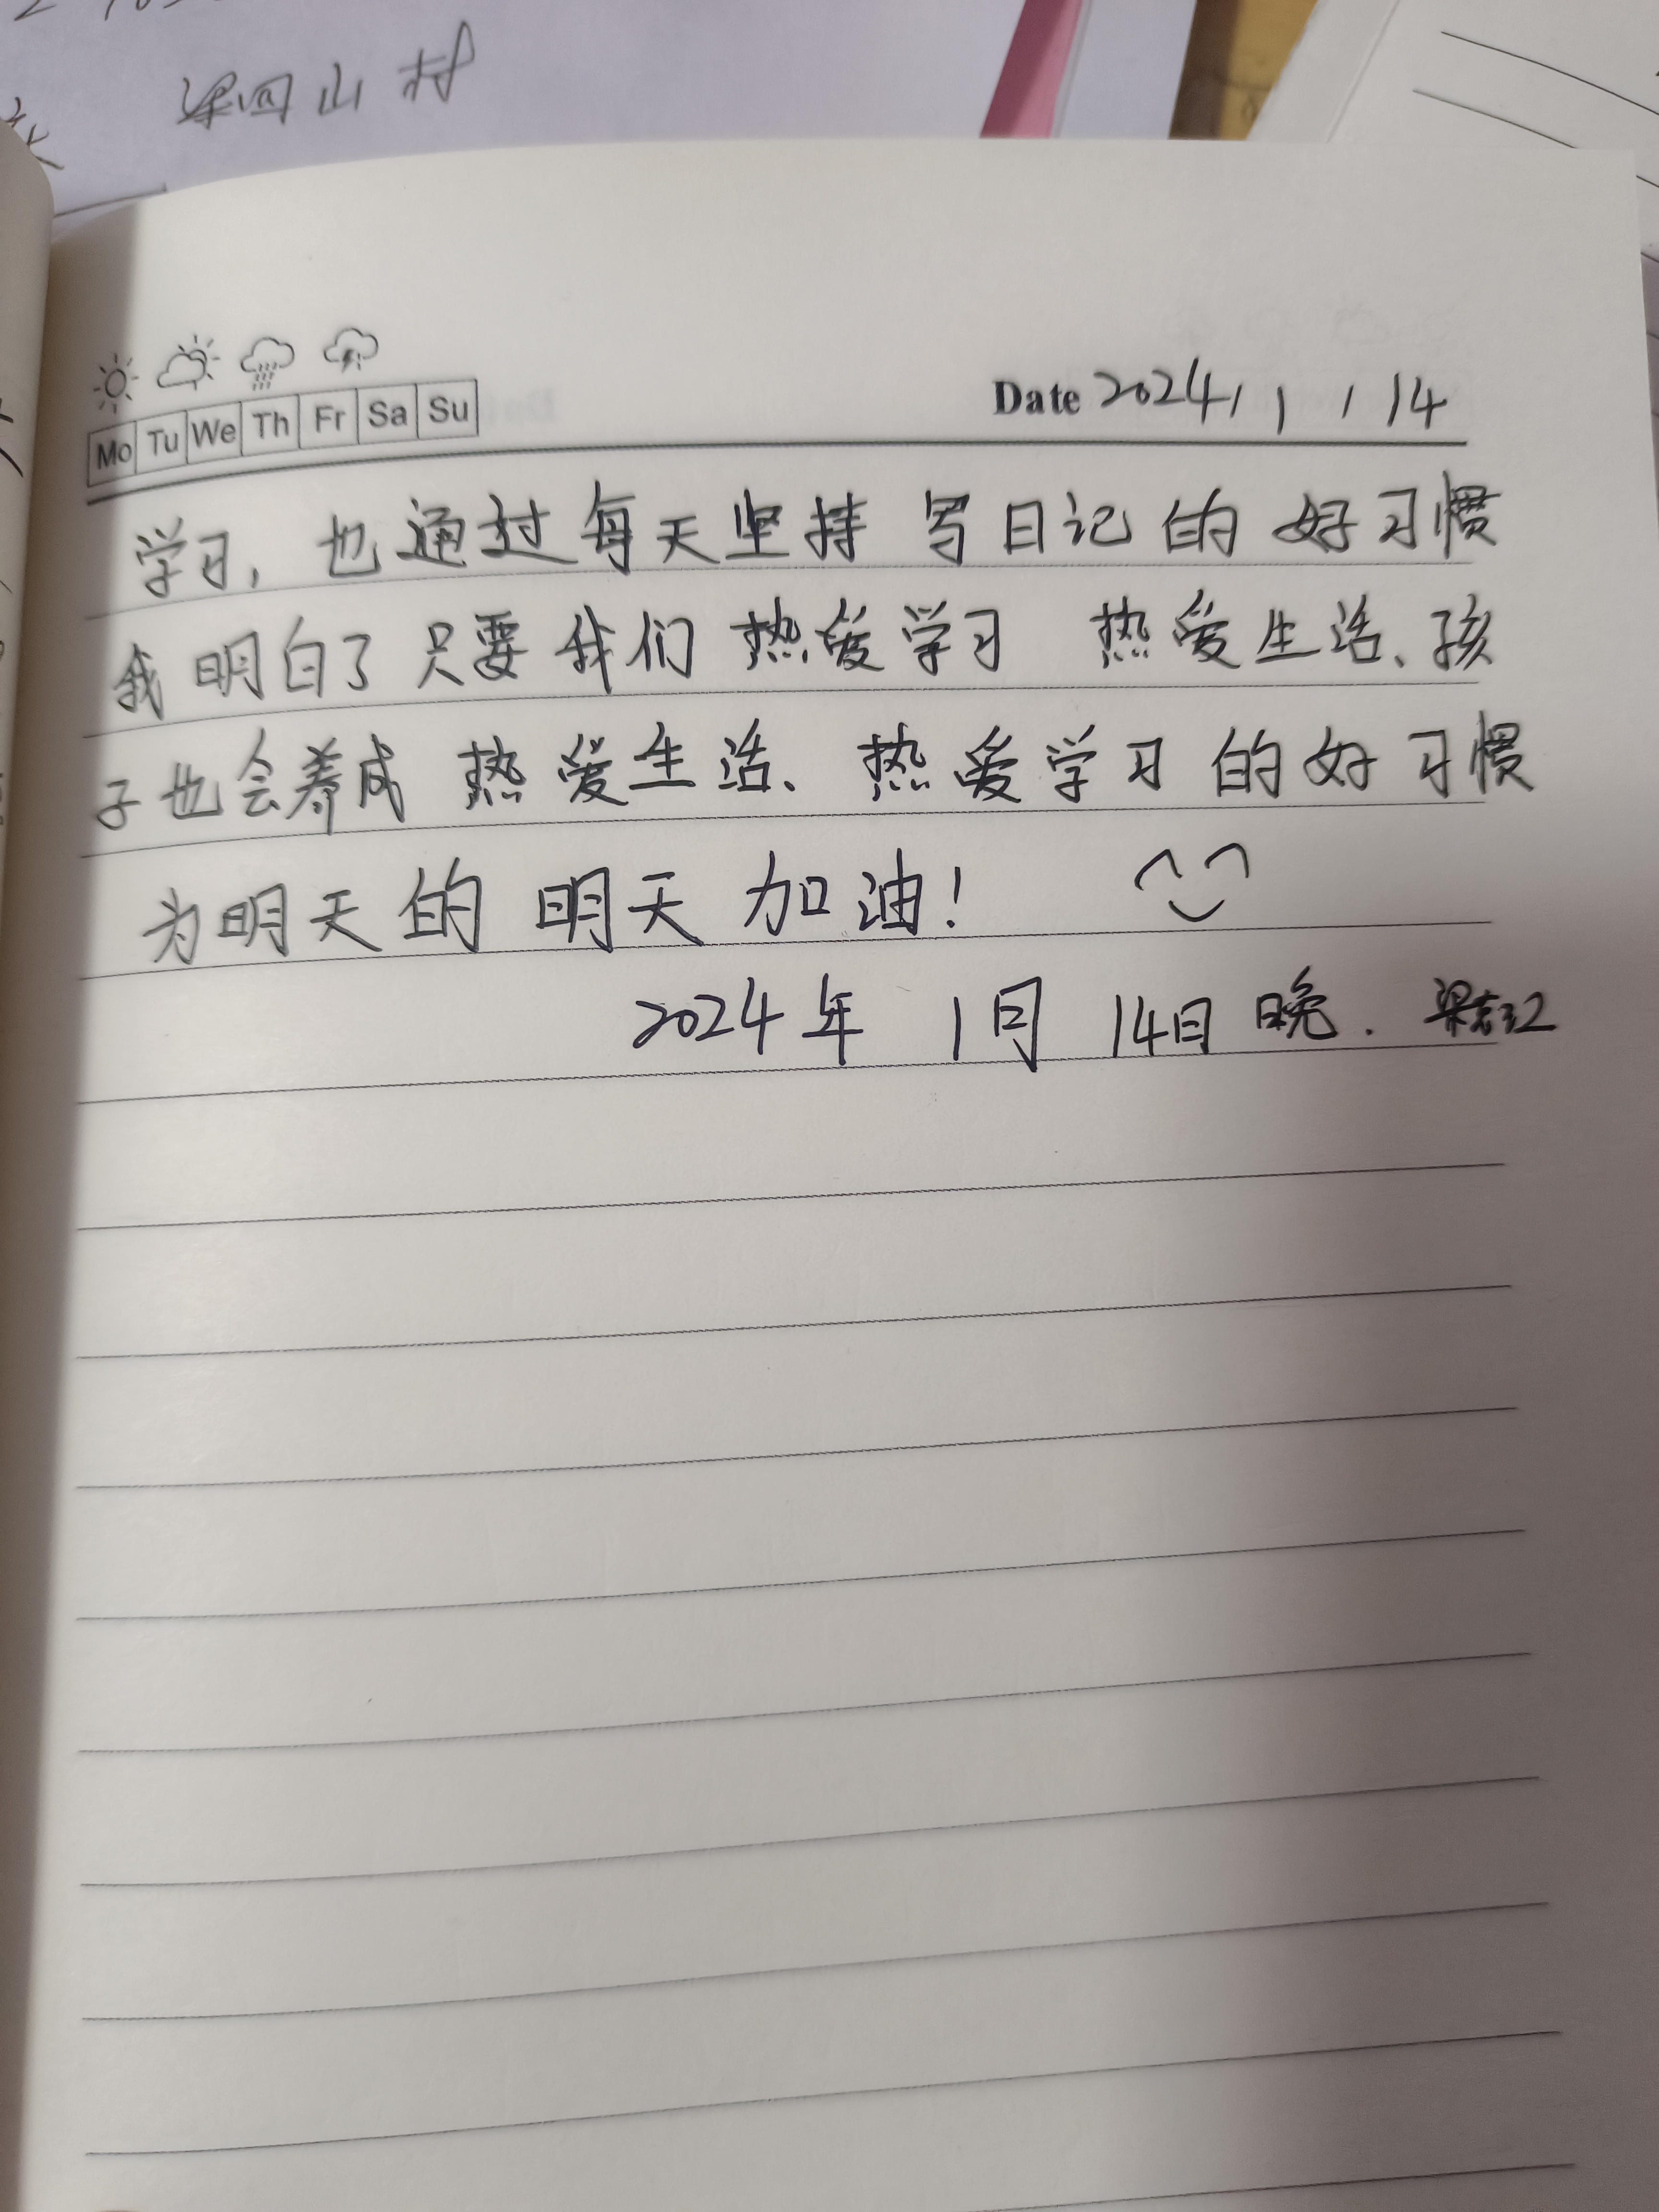 山村
Date 2024/1/14
Mo Tu We Th Fr Sa Su
学习，也通过每天坚持 写日记的好习惯
我明白了只要我们热爱学习 热爱生活、孩
子也会养成热爱生活、热爱学习的好习惯
为明天的明天加油！
2024年 1月 14日晚.